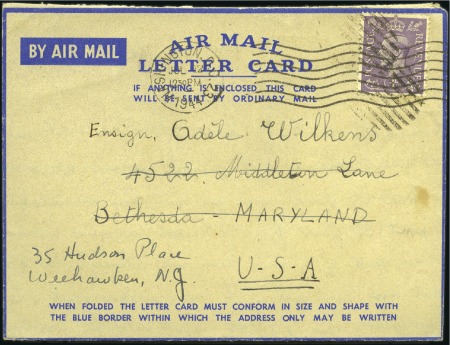 BY AIR MAIL
AIR MAIL
LETTER CARD
IF ANYTHING IS ENCLOSED THIS CARD
WILL BE SENT BY ORDINARY MAIL
1230PM
Ensign. Adèle Wilkens
4522 Middleton Lane
Bethesda - MARYLAND
35 Hudson Place
Weehawken, N.J.
U-S-A
WHEN FOLDED THE LETTER CARD MUST CONFORM IN SIZE AND SHAPE WITH
THE BLUE BORDER WITHIN WHICH THE ADDRESS ONLY MAY BE WRITTEN